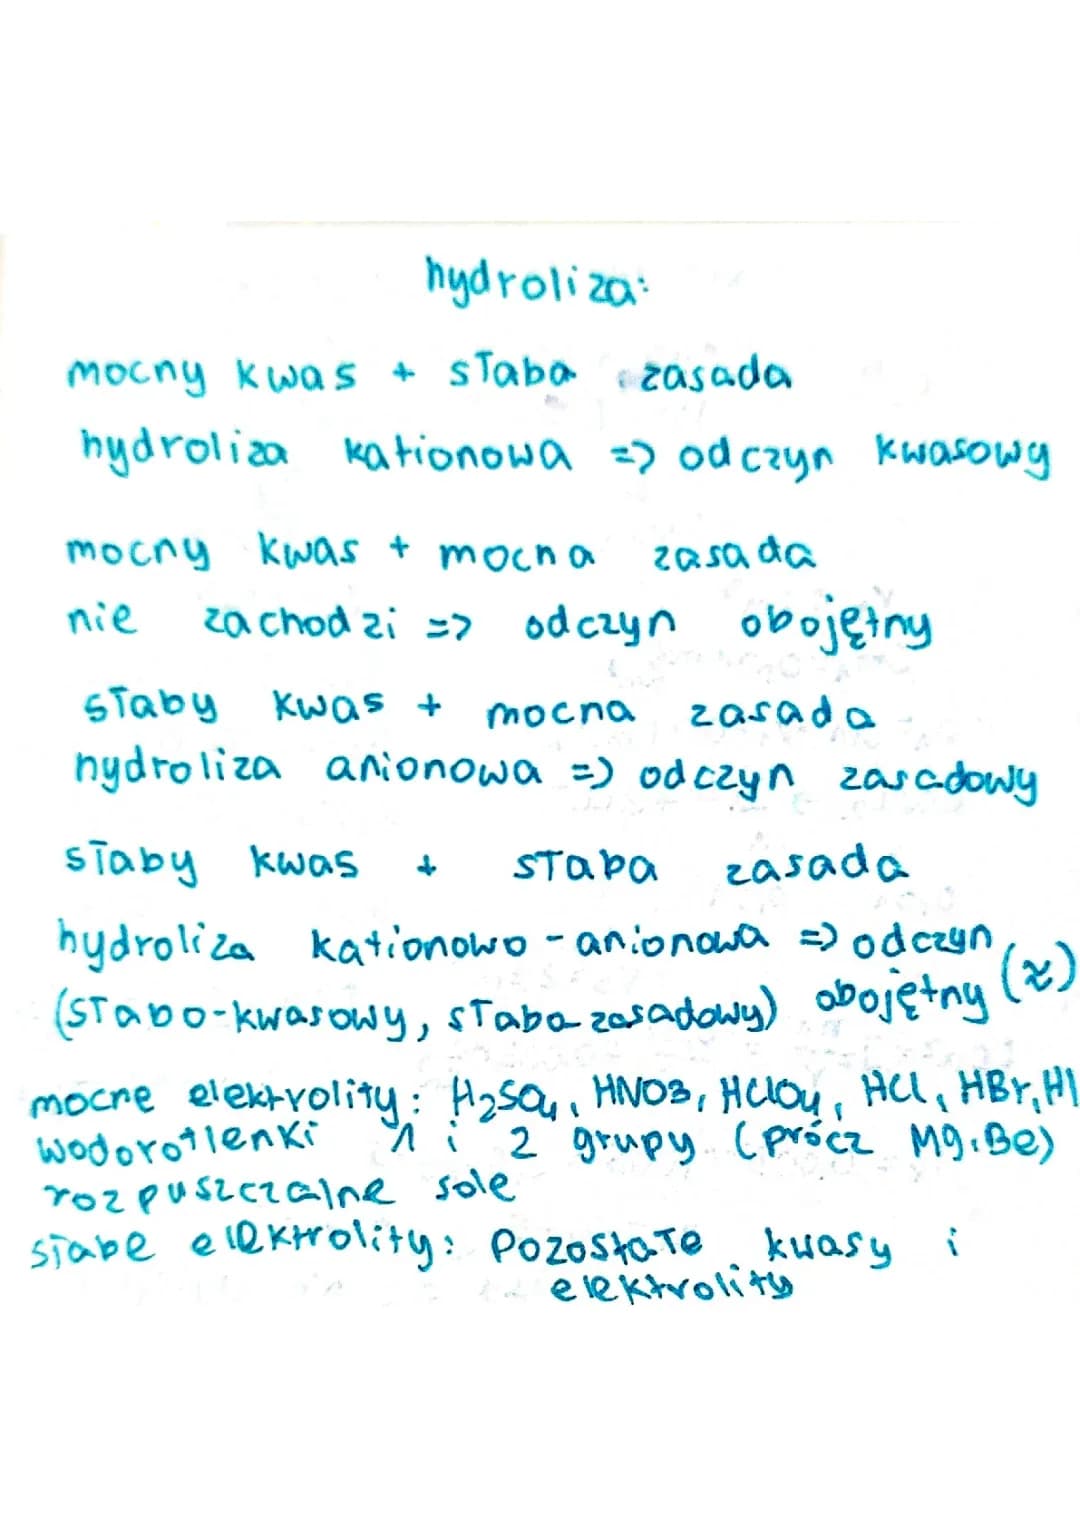 hydroliza:
mocny kwas + słaba zasada
hydroliza kationowa => odczyn kwasowy
mocny kwas + mocna zasada
nie zachodzi => odczyn obojętny
słaby kwas + mocna zasada
hydroliza anionowa => odczyn zasadowy
słaby kwas + słaba zasada
hydroliza kationowo-anionowa => odczyn
(słabo-kwasowy, słabo zasadowy) obojętny (≈)
mocne elektrolity: H₂SO₄, HNO3, HClO₄, HCl, HBr, HI
wodorotlenki 1 i 2 grupy (prócz Mg i Be)
rozpuszczalne sole
słabe elektrolity: Pozostałe kwasy i
elektrolity